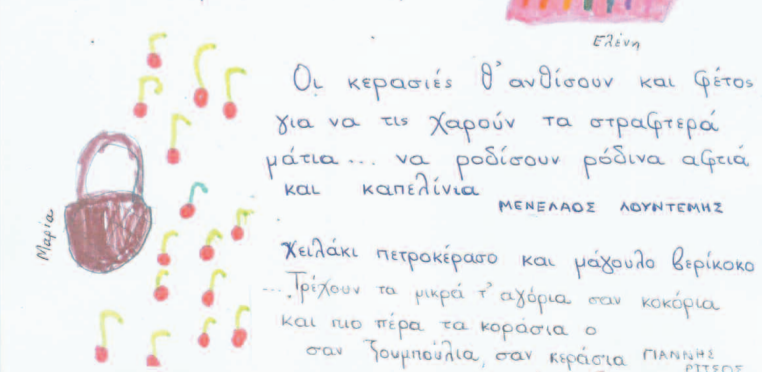 Ελένη
Οι κερασιές θ' ανθίσουν και φέτος
για να τις χαρούν τα στραφτερά
μάτια... να ροδίσουν ρόδινα αφτιά
και καπελίνια
ΜΕΝΕΛΑΟΣ ΛΟΥΝΤΕΜΗΣ
Μαρία
Χειλάκι πετροκέρασο και μάγουλο βερίκοκο
...Τρέχουν τα μικρά τ' αγόρια σαν κοκόρια
και πιο πέρα τα κοράσια ο
σαν ζουμπούλια, σαν κεράσια ΓΙΑΝΝΗΣ
ΡΙΤΣΟΣ